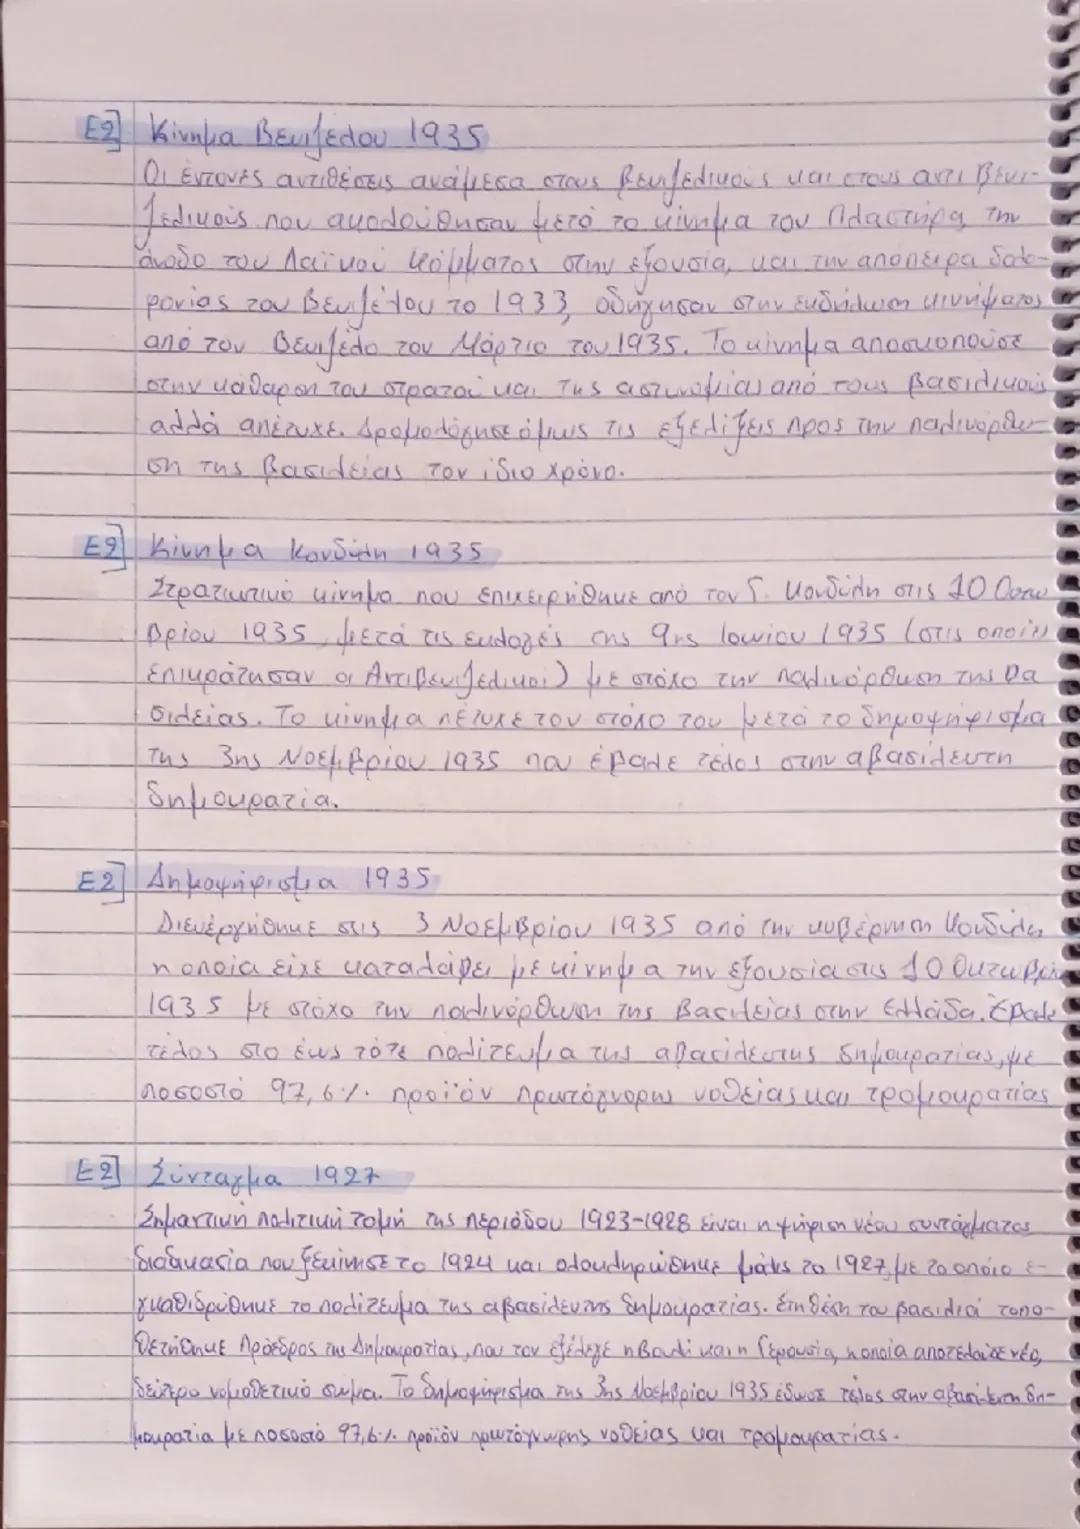 Ε2] Κίνημα Βενιζέλου 1935
Οι έντονες αντιθέσεις ανάμεσα στους βενιζελικούς και στους αντιβενι-
ζελικούς που ακολούθησαν μετά το κίνημα του Πλαστήρα, την
άνοδο του Λαϊκού Κόμματος στην εξουσία, και την απόπειρα δολο-
φονίας του Βενιζέλου το 1933, οδήγησαν στην εκδήλωση κινήματος
από τον Βενιζέλο τον Μάρτιο του 1935. Το κίνημα αποσκοπούσε
στην κάθαρση του στρατού και της αστυνομίας από τους βασιλικούς
αλλά απέτυχε. Δρομολόγησε όμως τις εξελίξεις προς την παλινόρθω-
ση της βασιλείας τον ίδιο χρόνο.
Ε2] Κίνημα Κονδύλη 1935
Στρατιωτικό κίνημα που επιχειρήθηκε από τον Γ. Κονδύλη στις 10 Οκτω
βρίου 1935, μετά τις εκλογές της 9ης Ιουνίου 1935 (στις οποίες
επικράτησαν οι Αντιβενιζελικοί) με στόχο την παλινόρθωση της βα
σιλείας. Το κίνημα πέτυχε τον στόχο του μετά το δημοψήφισμα
της 3ης Νοεμβρίου 1935 που έβαλε τέλος στην αβασίλευτη
δημοκρατία.
Ε2] Δημοψήφισμα 1935
Διενεργήθηκε στις 3 Νοεμβρίου 1935 από την κυβέρνηση Κονδύλη
η οποία είχε καταλάβει με κίνημα την εξουσία στις 10 Οκτωβρίου
1935 με στόχο την παλινόρθωση της βασιλείας στην Ελλάδα. Έβαλε
τέλος στο έως τότε πολίτευμα της αβασίλευτης δημοκρατίας, με
ποσοστό 97,6%. προϊόν πρωτόγνορης νοθείας και τρομοκρατίας
Ε2] Σύνταγμα 1927
Σημαντική πολιτική τομή της περιόδου 1923-1928 είναι η ψήφιση νέου συντάγματος
διαδικασία που ξεκίνησε το 1924 και ολοκληρώθηκε μόλις το 1927, με το οποίο ε-
γκαθιδρύθηκε το πολίτευμα της αβασίλευτης δημοκρατίας. Στη θέση του βασιλιά τοπο-
θετήθηκε Πρόεδρος της Δημοκρατίας, που τον εξέλεγε η Βουλή και η Γερουσία, η οποία αποτελούσε νέο,
δεύτερο νομοθετικό σώμα. Το δημοψήφισμα της 3ης Νοεμβρίου 1935 έδωσε τέλος στην αβασίλευτη δη-
μοκρατία με ποσοστό 97,6%. προϊόν πρωτόγνωρης νοθείας και τρομοκρατίας.